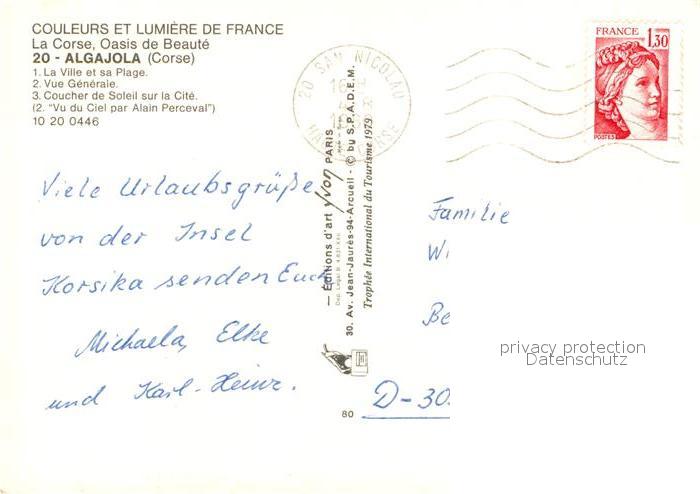 COULEURS ET LUMIÈRE DE FRANCE
La Corse, Oasis de Beauté
20 - ALGAJOLA (Corse)
1. La Ville et sa Plage.
2. Vue Générale.
3. Coucher de Soleil sur la Cité.
(2. "Vu du Ciel par Alain Perceval")
10 20 0446
FRANCE
1,30
POSTES
20 SAN NICOLAO
Viele Urlaubsgrüße
von der Insel
Korsika senden Euch
Michaela, Elke
und Karl-Heinz.
— Éditions d'art yvon PARIS
30. Av. Jean-Jaurès-94-Arcueil - © by S.P.A.D.E.M.
Trophée International du Tourisme 1979
80
Familie
Wi
Be
D-30
privacy protection
Datenschutz